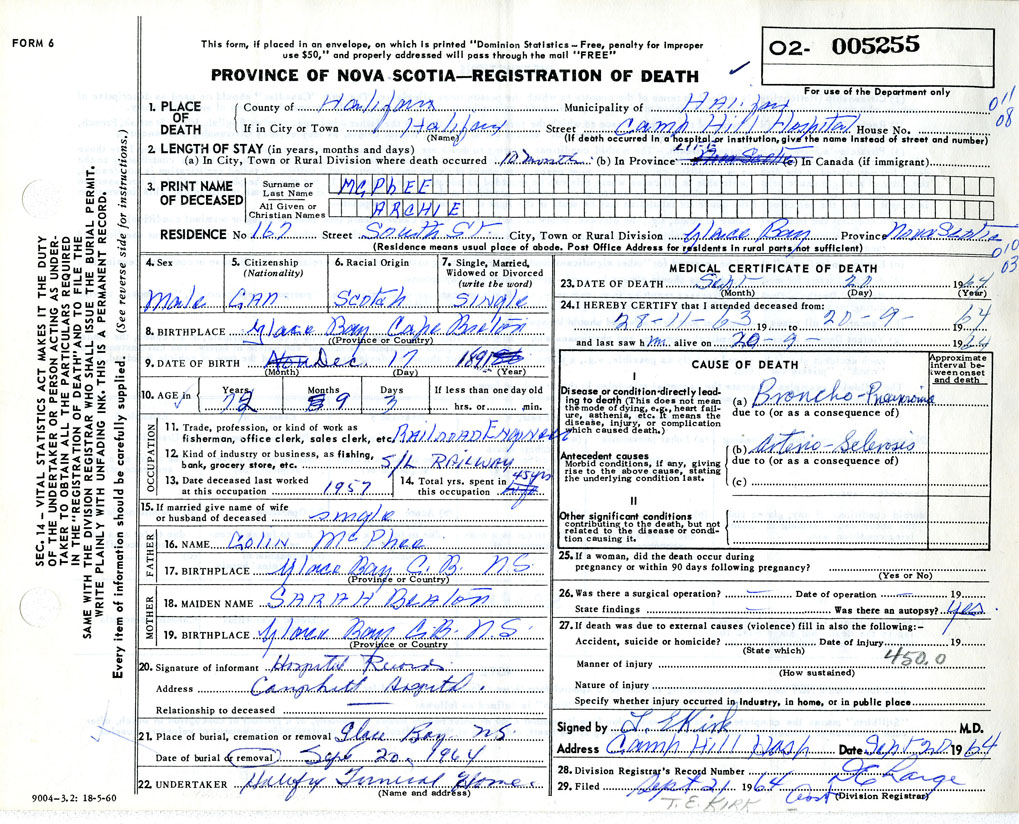 FORM 6
This form, if placed in an envelope, on which is printed "Dominion Statistics – Free, penalty for improper
use $50," and properly addressed will pass through the mail "FREE"
PROVINCE OF NOVA SCOTIA—REGISTRATION OF DEATH
02- 005255
For use of the Department only
011
08
1. PLACE OF DEATH
County of Halifax Municipality of Halifax
If in City or Town Halifax Street Camp Hill Hospital House No.
(Name) (If death occurred in a hospital or institution, give the name instead of street and number)
2. LENGTH OF STAY (in years, months and days)
(a) In City, Town or Rural Division where death occurred 10 month (b) In Province Life (c) In Canada (if immigrant)
3. PRINT NAME OF DECEASED
Surname or Last Name MCPHEE
All Given or Christian Names ARCHIE
RESIDENCE No 167 Street South St City, Town or Rural Division Glace Bay Province Nova Scotia
(Residence means usual place of abode. Post Office Address for residents in rural parts not sufficient)
010
03
4. Sex Male
5. Citizenship (Nationality) CAN
6. Racial Origin Scotch
7. Single, Married, Widowed or Divorced (write the word) Single
8. BIRTHPLACE Glace Bay Cape Breton
(Province or Country)
9. DATE OF BIRTH Dec. 17 1891
(Month) (Day) (Year)
10. AGE in Years 72 Months 9 Days 3 If less than one day old
hrs. or min.
OCCUPATION
11. Trade, profession, or kind of work as fisherman, office clerk, sales clerk, etc. Railroad Engineer
12. Kind of industry or business, as fishing, bank, grocery store, etc. S/L RAILWAY
13. Date deceased last worked at this occupation 1957
14. Total yrs. spent in this occupation 45 yrs
15. If married give name of wife or husband of deceased single
FATHER
16. NAME Colin McPhee
17. BIRTHPLACE Glace Bay C.B. N.S.
(Province or Country)
MOTHER
18. MAIDEN NAME SARAH Beaton
19. BIRTHPLACE Glace Bay C.B. N.S.
(Province or Country)
20. Signature of informant Hospital Records
Address Camphill Hospital.
Relationship to deceased —
21. Place of burial, cremation or removal Glace Bay NS.
Date of burial or removal Sept. 20, 1964
22. UNDERTAKER Funeral Home.
(Name and address)
9004-3.2: 18-5-60
MEDICAL CERTIFICATE OF DEATH
23. DATE OF DEATH Sept 20 1964
(Month) (Day) (Year)
24. I HEREBY CERTIFY that I attended deceased from:
28-11-63 19 to 20-9- 1964
and last saw h im alive on 20-9- 1964
CAUSE OF DEATH
Approximate interval between onset and death
I
Disease or condition directly leading to death (This does not mean the mode of dying, e.g., heart failure, asthenia, etc. It means the disease, injury, or complication which caused death.)
(a) Broncho-Pneumonia
due to (or as a consequence of)
Antecedent causes
Morbid conditions, if any, giving rise to the above cause, stating the underlying condition last.
(b) Arterio-Sclerosis
due to (or as a consequence of)
(c)
II
Other significant conditions
contributing to the death, but not related to the disease or condition causing it.
25. If a woman, did the death occur during
pregnancy or within 90 days following pregnancy?
(Yes or No)
26. Was there a surgical operation? — Date of operation — 19
State findings — Was there an autopsy? Yes.
27. If death was due to external causes (violence) fill in also the following:–
Accident, suicide or homicide? Date of injury 19
(State which)
450.0
Manner of injury
(How sustained)
Nature of injury
Specify whether injury occurred in industry, in home, or in public place
Signed by T. E Kirk M.D.
Address Camp Hill Hosp Date Sept 20 1964
28. Division Registrar's Record Number
29. Filed Sept 21 1964
(Division Registrar)
T. E. KIRK
SEC. 14 – VITAL STATISTICS ACT MAKES IT THE DUTY
OF THE UNDERTAKER OR PERSON ACTING AS UNDER-
TAKER TO OBTAIN ALL THE PARTICULARS REQUIRED
IN THE "REGISTRATION OF DEATH" AND TO FILE THE
SAME WITH THE DIVISION REGISTRAR WHO SHALL ISSUE THE BURIAL PERMIT.
WRITE PLAINLY WITH UNFADING INK. THIS IS A PERMANENT RECORD.
Every item of information should be carefully supplied. (See reverse side for instructions.)